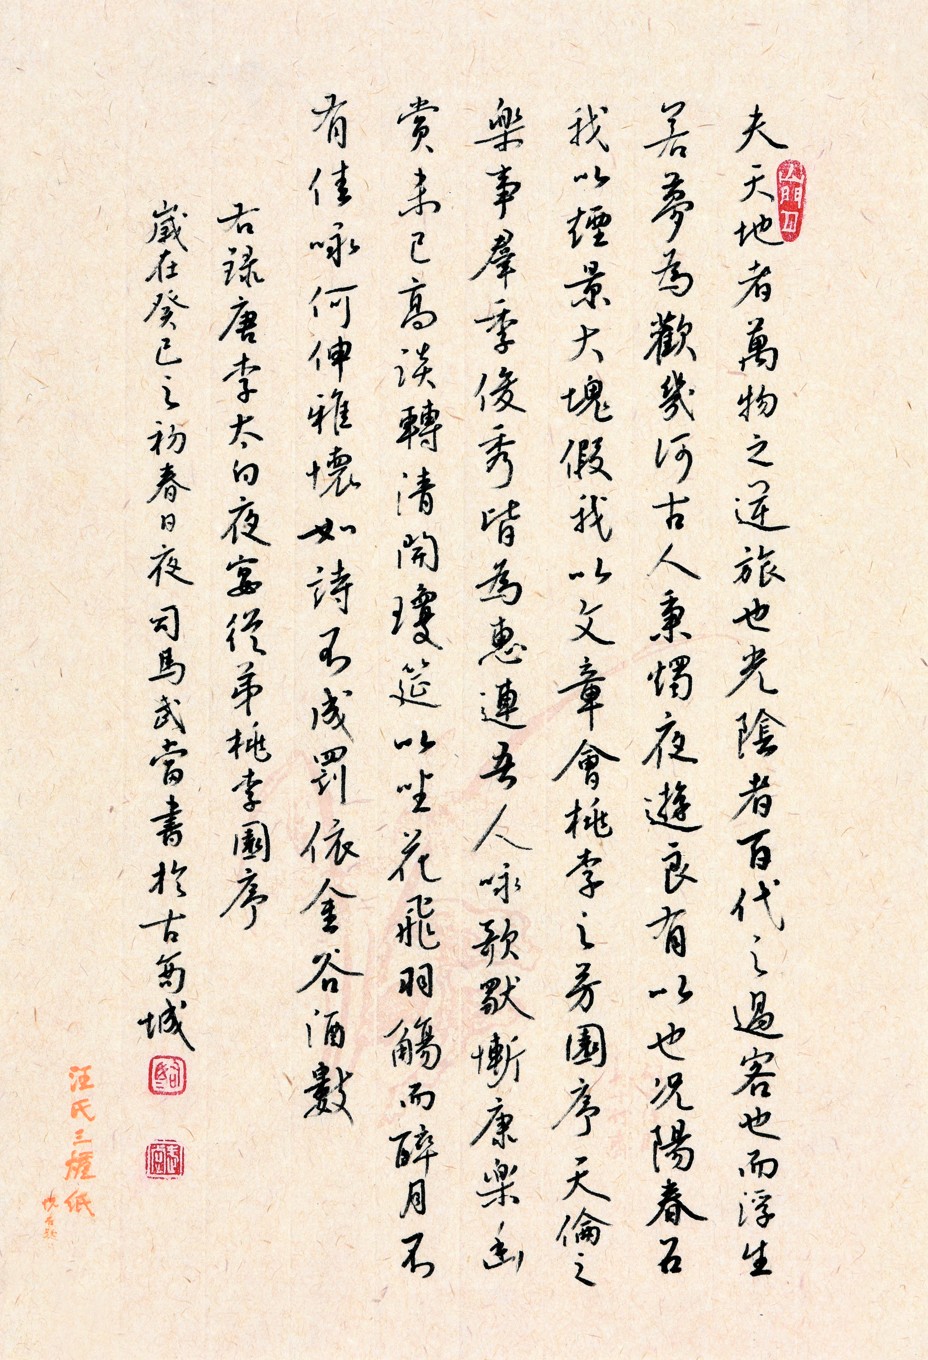 夫天地者萬物之逆旅也光陰者百代之過客也而浮生
若夢為歡幾何古人秉燭夜遊良有以也況陽春召
我以煙景大塊假我以文章會桃李之芳園序天倫之
樂事羣季俊秀皆為惠連吾人咏歌慚康樂幽
賞未已高談轉清開瓊筵以坐花飛羽觴而醉月不
有佳咏何伸雅懷如詩不成罰依金谷酒數
右錄唐李太白夜宴從弟桃李園序
歲在癸巳之初春日夜司馬武當書於古宛城
司馬
武當
汪氏三檀紙